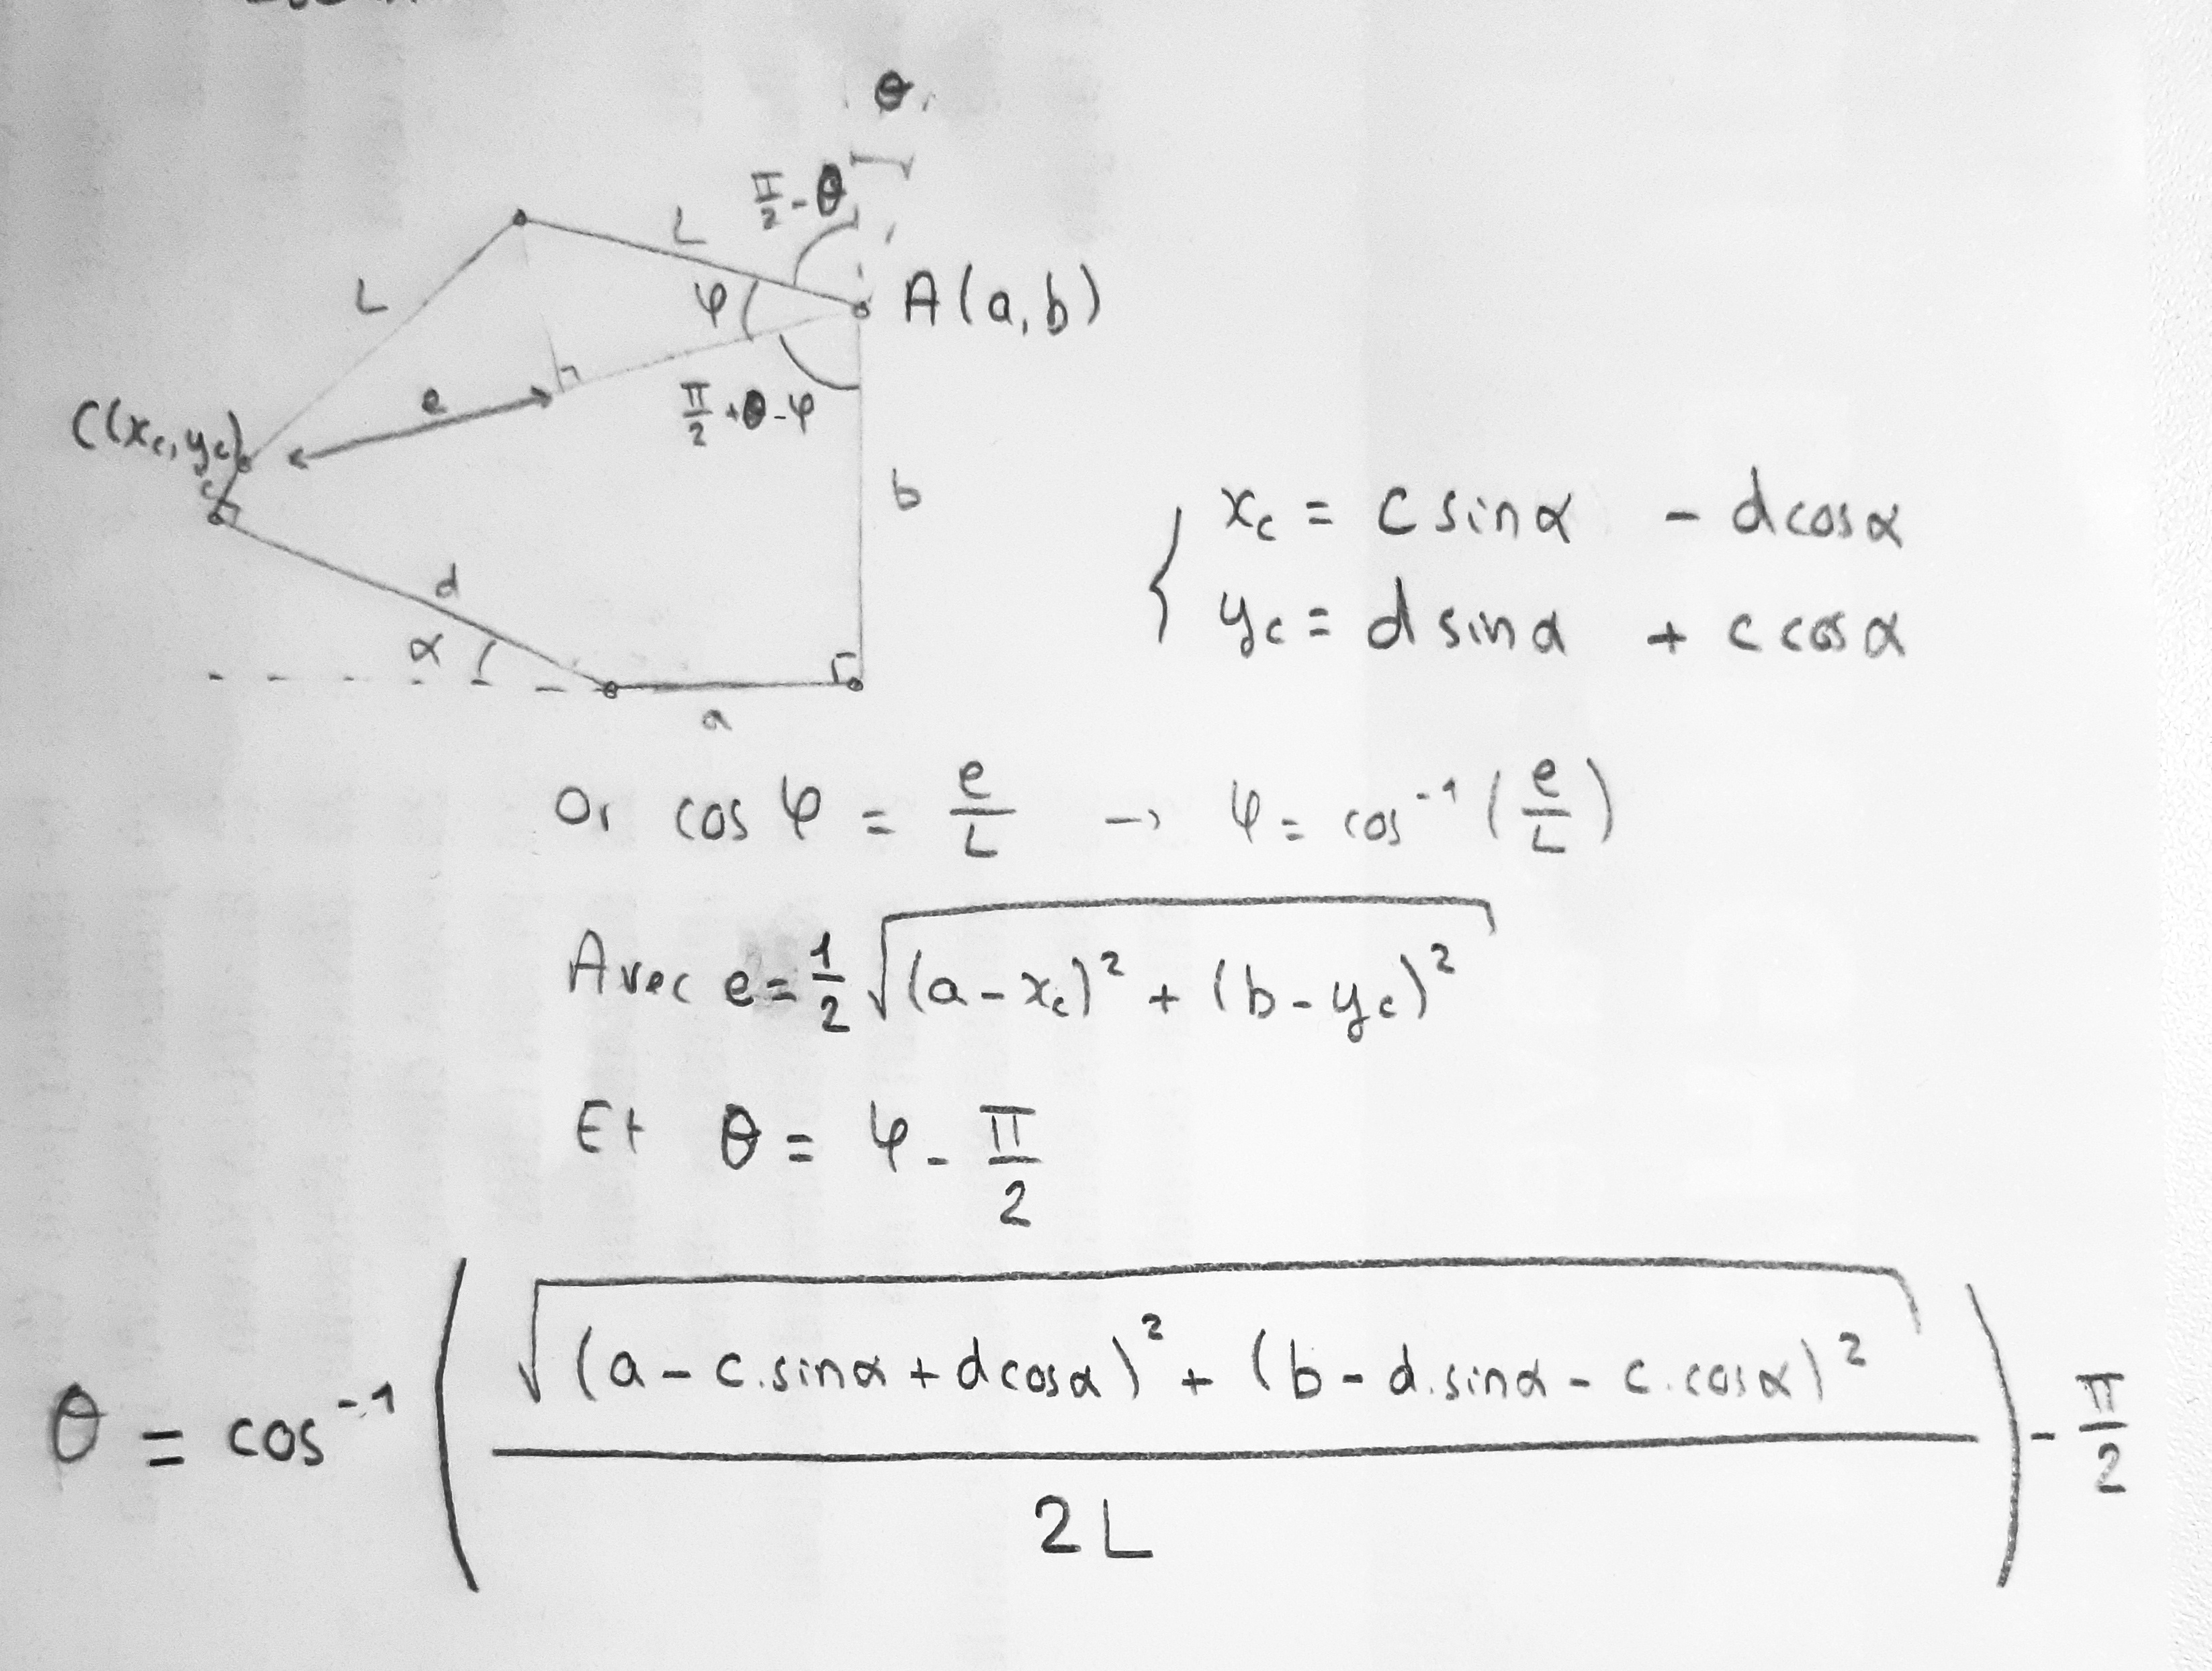 θ
π/2 - θ
L
L
φ
A(a,b)
e
π/2 + θ - φ
C(xc, yc)
c
b
d
α
a
{ xc = c sinα - d cosα
yc = d sinα + c cosα
Or cos φ = e/L → φ = cos⁻¹(e/L)
Avec e = 1/2 √((a-xc)² + (b-yc)²)
Et θ = φ - π/2
θ = cos⁻¹(√((a - c.sinα + d cosα)² + (b - d.sinα - c.cosα)²) / 2L) - π/2